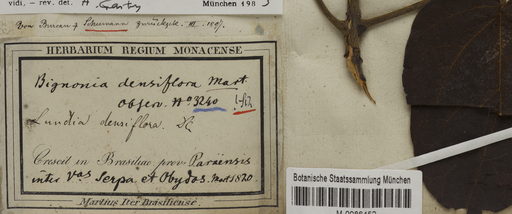 vidi, - rev. det. A. Gentry München 198
Von Bureau & Schumann zurückgek. III. 1897.
HERBARIUM REGIUM MONACENSE
Bignonia densiflora Mart
Observ. No 3240 !
Lundia densiflora. DC
Crescit in Brasiliae prov. Paraensis
inter Vas Serpa et Obydos. Mart 1820
Martius Iter Brasiliense.
Botanische Staatssammlung München